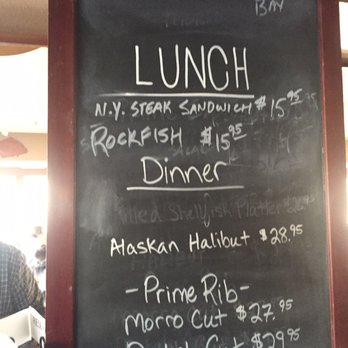 BAY
LUNCH
N.Y. STEAK SANDWICH $15.95
ROCKFISH $15.95
Dinner
Shellfish Platter
Alaskan Halibut $28.95
-Prime Rib-
Morro Cut $27.95
Cut $29.95